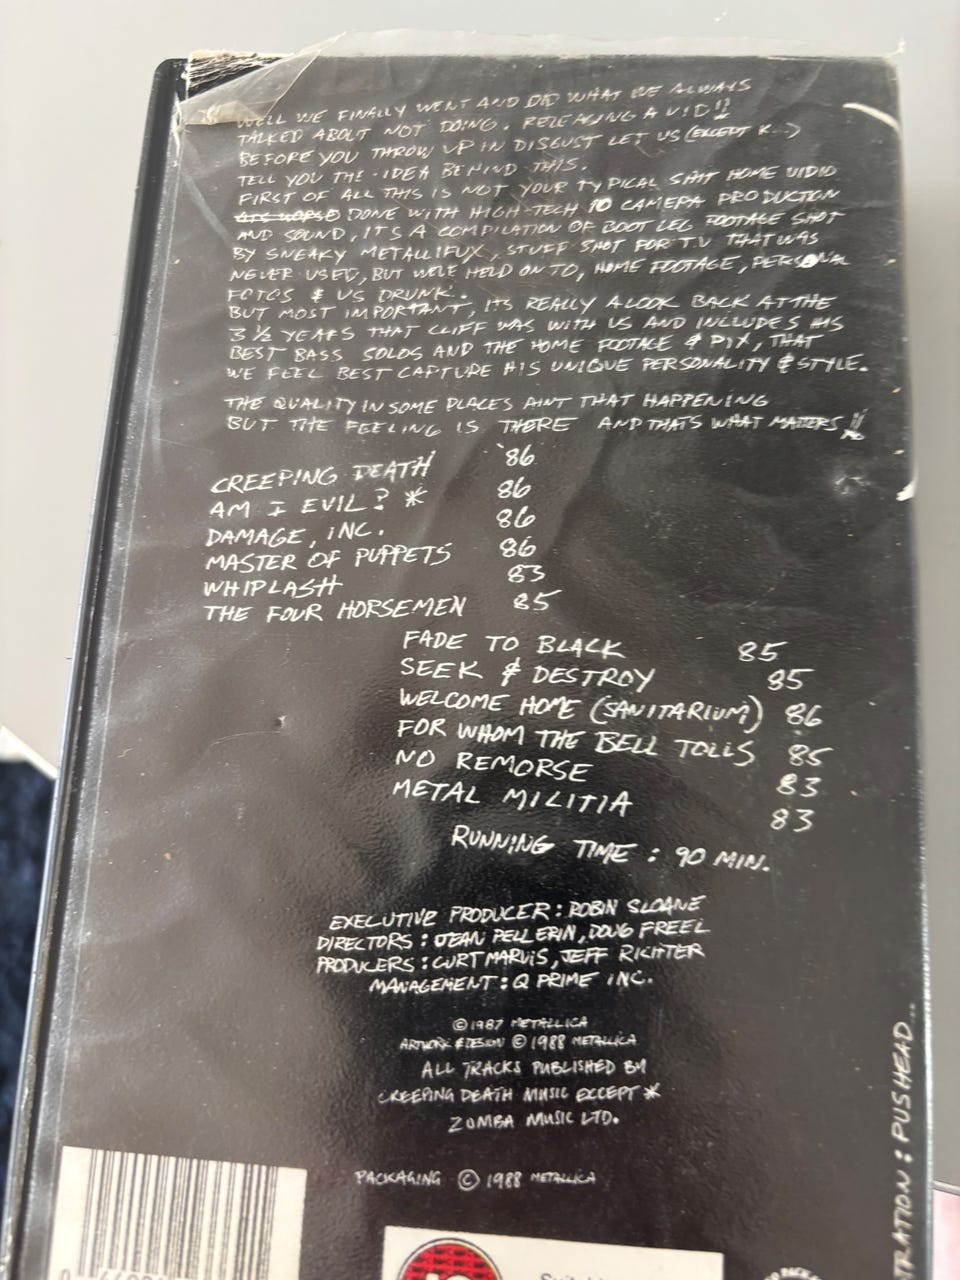 WELL WE FINALLY WENT AND DID WHAT WE ALWAYS
TALKED ABOUT NOT DOING. RELEASING A VID!!
BEFORE YOU THROW UP IN DISGUST LET US (EXCEPT K...)
TELL YOU THE IDEA BEHIND THIS.
FIRST OF ALL THIS IS NOT YOUR TYPICAL SHIT HOME VIDIO
DONE WITH HIGH-TECH 10 CAMERA PRODUCTION
AND SOUND, IT'S A COMPILATION OF BOOTLEG FOOTAGE SHOT
BY SNEAKY METALLIFUX, STUFF SHOT FOR T.V THAT WAS
NEVER USED, BUT WE'VE HELD ON TO, HOME FOOTAGE, PERSONAL
FOTOS & US DRUNK.
BUT MOST IMPORTANT, ITS REALLY A LOOK BACK AT THE
3 1/2 YEARS THAT CLIFF WAS WITH US AND INCLUDES HIS
BEST BASS SOLOS AND THE HOME FOOTAGE & PIX, THAT
WE FEEL BEST CAPTURE HIS UNIQUE PERSONALITY & STYLE.
THE QUALITY IN SOME PLACES AINT THAT HAPPENING
BUT THE FEELING IS THERE AND THATS WHAT MATTERS!!
CREEPING DEATH '86
AM I EVIL? * 86
DAMAGE, INC. 86
MASTER OF PUPPETS 86
WHIPLASH 83
THE FOUR HORSEMEN 85
FADE TO BLACK 85
SEEK & DESTROY 85
WELCOME HOME (SANITARIUM) 86
FOR WHOM THE BELL TOLLS 85
NO REMORSE 83
METAL MILITIA 83
RUNNING TIME : 90 MIN.
EXECUTIVE PRODUCER : ROBIN SLOANE
DIRECTORS : JEAN PELLERIN, DOUG FREEL
PRODUCERS : CURT MARVIS, JEFF RICHTER
MANAGEMENT : Q PRIME INC.
© 1987 METALLICA
ARTWORK & DESIGN © 1988 METALLICA
ALL TRACKS PUBLISHED BY
CREEPING DEATH MUSIC EXCEPT *
ZOMBA MUSIC LTD.
PACKAGING © 1988 METALLICA
TRATION : PUSHEAD...